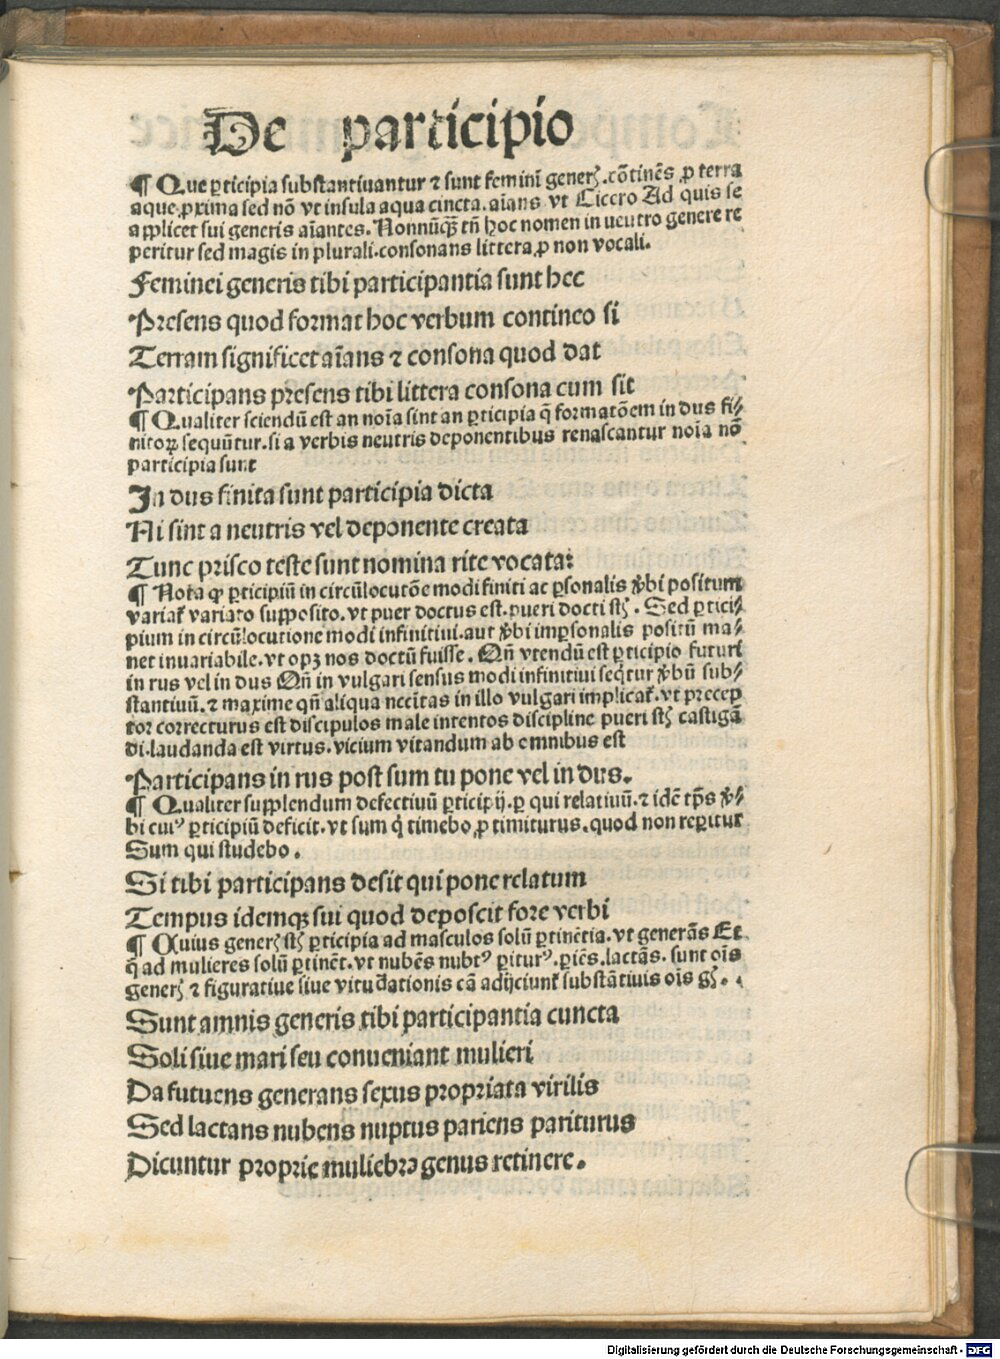 De participio
¶ Que ꝑticipia substantiuantur ⁊ sunt feminī generꝭ. cōtinēs ꝓ terra
aque ꝓxima sed nō vt insula aqua cincta. aīans vt Cicero Ad quis se
applicet sui generis aīantes. Nonnūqꝫ tñ hoc nomen in neutro genere re
peritur sed magis in plurali. consonans littera ꝓ non vocali.
Feminei generis tibi participantia sunt hec
Presens quod format hoc verbum contineo si
Terram significet aīans ⁊ consona quod dat
Participans presens tibi littera consona cum sit
¶ Qualiter sciendū est an noīa sint an ꝑticipia q̄ formatōem in dus fi⸗
nitoꝝ sequūtur. si a verbis neutris deponentibus renascantur noīa nō
participia sunt
In dus finita sunt participia dicta
Ni sint a neutris vel deponente creata
Tunc prisco teste sunt nomina rite vocata:
¶ Nota ꝙ ꝑticipiū in circūlocutōe modi finiti ac ꝑsonalis v̄bi positum
variať variato supposito. vt puer doctus est. pueri docti st̄ꝭ. Sed ꝑtici⸗
pium in circūlocutione modi infinitiui. aut v̄bi imꝑsonalis positū ma⸗
net inuariabile. vt opꝫ nos doctū fuisse. Qñ vtendū est ꝑticipio futuri
in rus vel in dus Qñ in vulgari sensus modi infinitiui seq̄tur v̄bū sub⸗
stantiuū. ⁊ maxime qñ aliqua necītas in illo vulgari implicať. vt precep
tor correcturus est discipulos male intentos discipline pueri st̄ꝭ castigā
di. laudanda est virtus. vicium vitandum ab omnibus est
Participans in rus post sum tu pone vel in dus.
¶ Qualiter supplendum defectiuū ꝑticipij. ꝑ qui relatiuū. ⁊ idē tp̄s v̄⸗
bi cuiꝰ ꝑticipiū deficit. vt sum q̇ timebo ꝓ timiturus. quod non reꝑitur
Sum qui studebo.
Si tibi participans desit qui pone relatum
Tempus idemqꝫ sui quod deposcit fore verbi
¶ Cuius generꝭ st̄ꝭ ꝑticipia ad masculos solū ꝑtinētia. vt generās Et
q̄ ad mulieres solū ꝑtinēt. vt nubēs nubtꝰ ꝑiturꝰ. ꝑiēs. lactās. sunt oīs
generꝭ ⁊ figuratiue siue vitudationis cā adijciunť substātiuis oīs gꝭ.
Sunt amnis generis tibi participantia cuncta
Soli siue mari seu conueniant mulieri
Da futuens generans sexus propriata virilis
Sed lactans nubens nuptus pariens pariturus
Dicuntur proprie muliebra genus retinere.
Digitalisierung gefördert durch die Deutsche Forschungsgemeinschaft - DFG